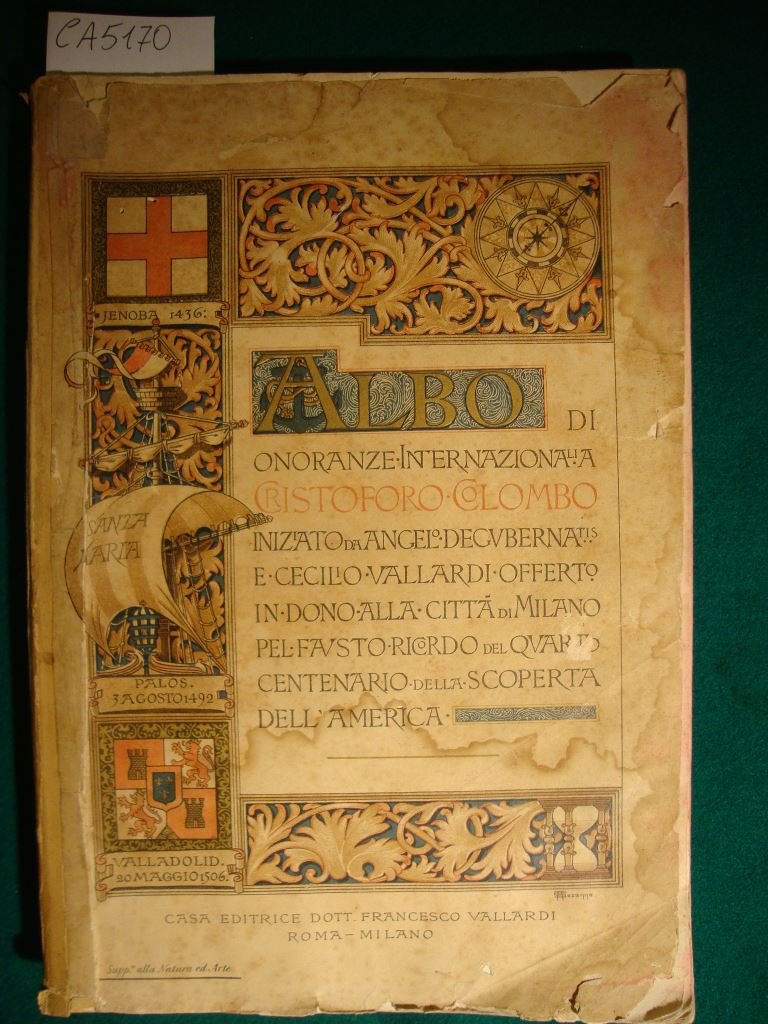 CA5170
JENOBA 1436:
SANTA
MARIA
PALOS.
3 AGOSTO 1492
VALLADOLID.
20 MAGGIO 1506.
ALBO DI
ONORANZE·INTERNAZIONALI A
CRISTOFORO·COLOMBO
INIZIATO DA ANGELO·DEGVBERNATIS
E·CECILIO·VALLARDI·OFFERTO
IN·DONO·ALLA·CITTÁ DI MILANO
PEL·FAVSTO·RICORDO DEL QVARTO
CENTENARIO·DELLA·SCOPERTA
DELL'AMERICA·
CASA EDITRICE DOTT. FRANCESCO VALLARDI
ROMA–MILANO
Supp.º alla Natura ed Arte.